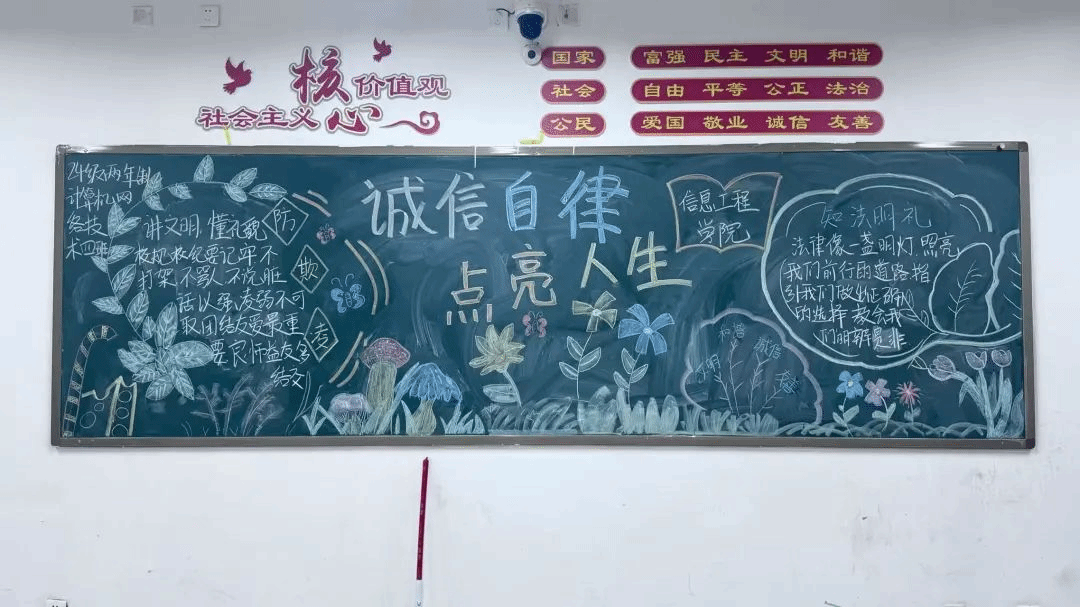 核
价值观
社会主义
心
国家 富强 民主 文明 和谐
社会 自由 平等 公正 法治
公民 爱国 敬业 诚信 友善
24级两年制
计算机网
络技
术四班
讲文明,懂礼貌
校规校纪要记牢不
打架不骂人不
话以强凌弱不可
取团结友爱最重
要良师益友多
结交
防
欺
凌
诚信自律
点亮人生
信息工程
学院
和谐
诚信
文明
知法明礼
法律像一盏明灯.照亮
我们前行的道路指
引我们做出正确
的选择教会我
们明辨是非